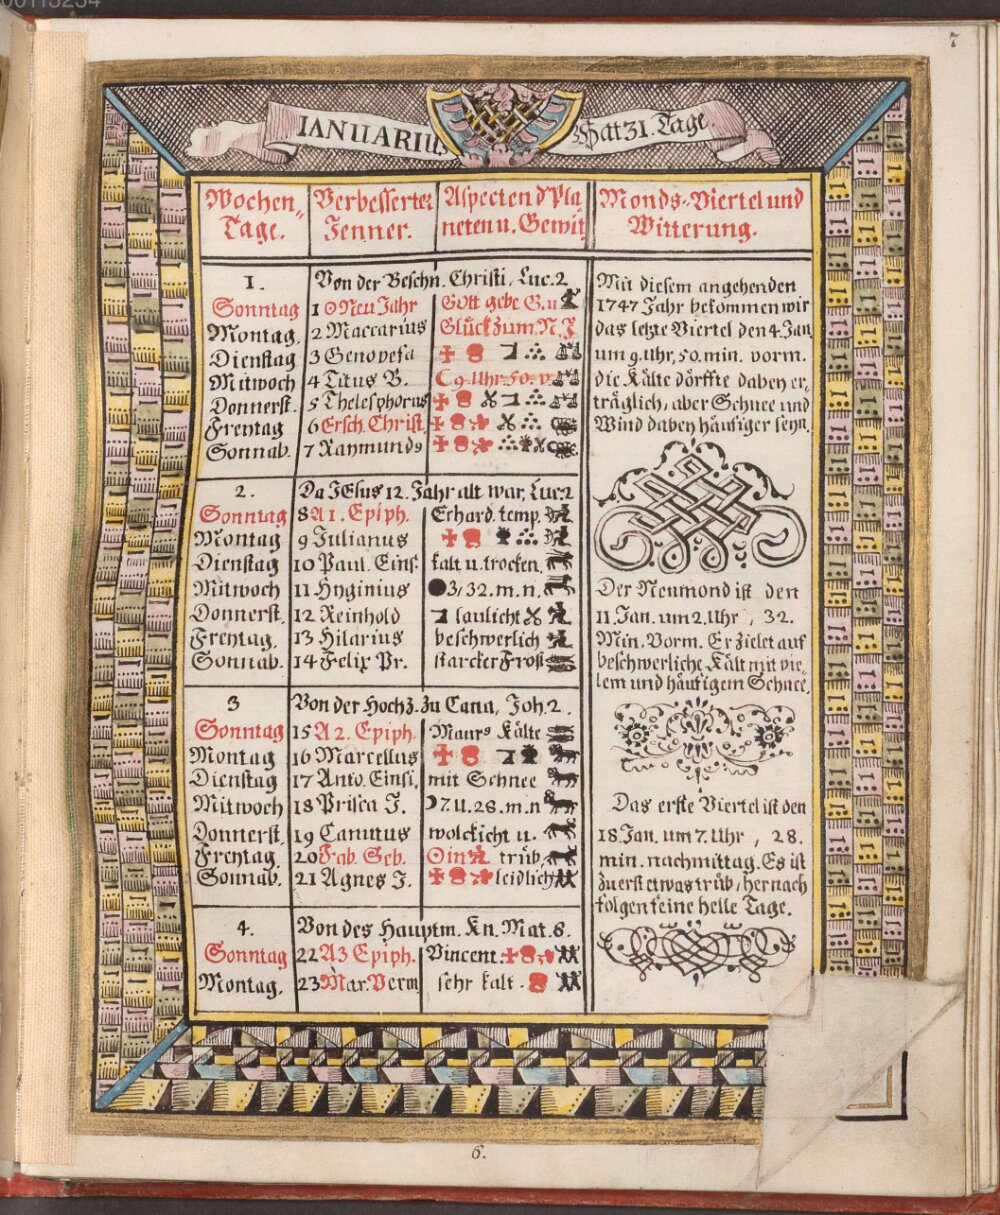 00113254
7
IANUARIUS Hat 31. Tage
Wochen„ Tage.
Verbesserter Jenner.
Aspecten d Pla neten u. Gewit
Monds-Viertel und Witterung.
1. Von der Beschn. Christi, Luc. 2
Sonntag 1 ☉ Neu Jahr Gott gebe G. u
Montag 2 Maccarius Glück zum N. J
Dienstag 3 Genovefa
Mitwoch 4 Titus B. ☾ 9. Uhr. 50. v.
Donnerst. 5 Thelesphorus
Freytag 6 Ersch. Christ.
Sonnab. 7 Raymunds
2. Da JEsus 12. Jahr alt war, Luc. 2
Sonntag 8 A 1. Epiph. Erhard. temp.
Montag 9 Julianus
Dienstag 10 Paul. Eins. kalt u. trocken,
Mitwoch 11 Hyginius ●3/32. m. n.
Donnerst. 12 Reinhold laulicht
Freytag. 13 Hilarius beschwerlich
Sonnab. 14 Felix Pr. starcker Frost
3 Von der Hochz. zu Cana, Joh. 2.
Sonntag 15 A 2. Epiph. Maurs Kälte
Montag 16 Marcellus
Dienstag 17 Anto. Einsi. mit Schnee
Mitwoch 18 Prisca J. ☽ 7. U. 28. m. n
Donnerst. 19 Canutus wolckicht u.
Freytag. 20 Fab. Seb. ☉ in trüb,
Sonnab. 21 Agnes J. leidlich
4. Von des Hauptm. Kn. Mat. 8.
Sonntag 22 A3 Epiph. Vincent.
Montag. 23 Mar. Verm sehr kalt.
Mit diesem angehenden
1747 Jahr bekommen wir
das letzte Viertel den 4. Jan
um 9. Uhr, 50. min. vorm.
die Kälte dörffte dabey er„
träglich, aber Schnee und
Wind dabey häufiger seyn.
Der Neumond ist den
11. Jan. um 2. Uhr , 32.
Min. Vorm. Er zielet auf
beschwerliche Kält mit vie„
lem und häufigem Schnee.
Das erste Viertel ist den
18. Jan. um 7. Uhr , 28.
min. nachmittag. Es ist
zuerst etwas trüb, hernach
folgen feine helle Tage.
6.